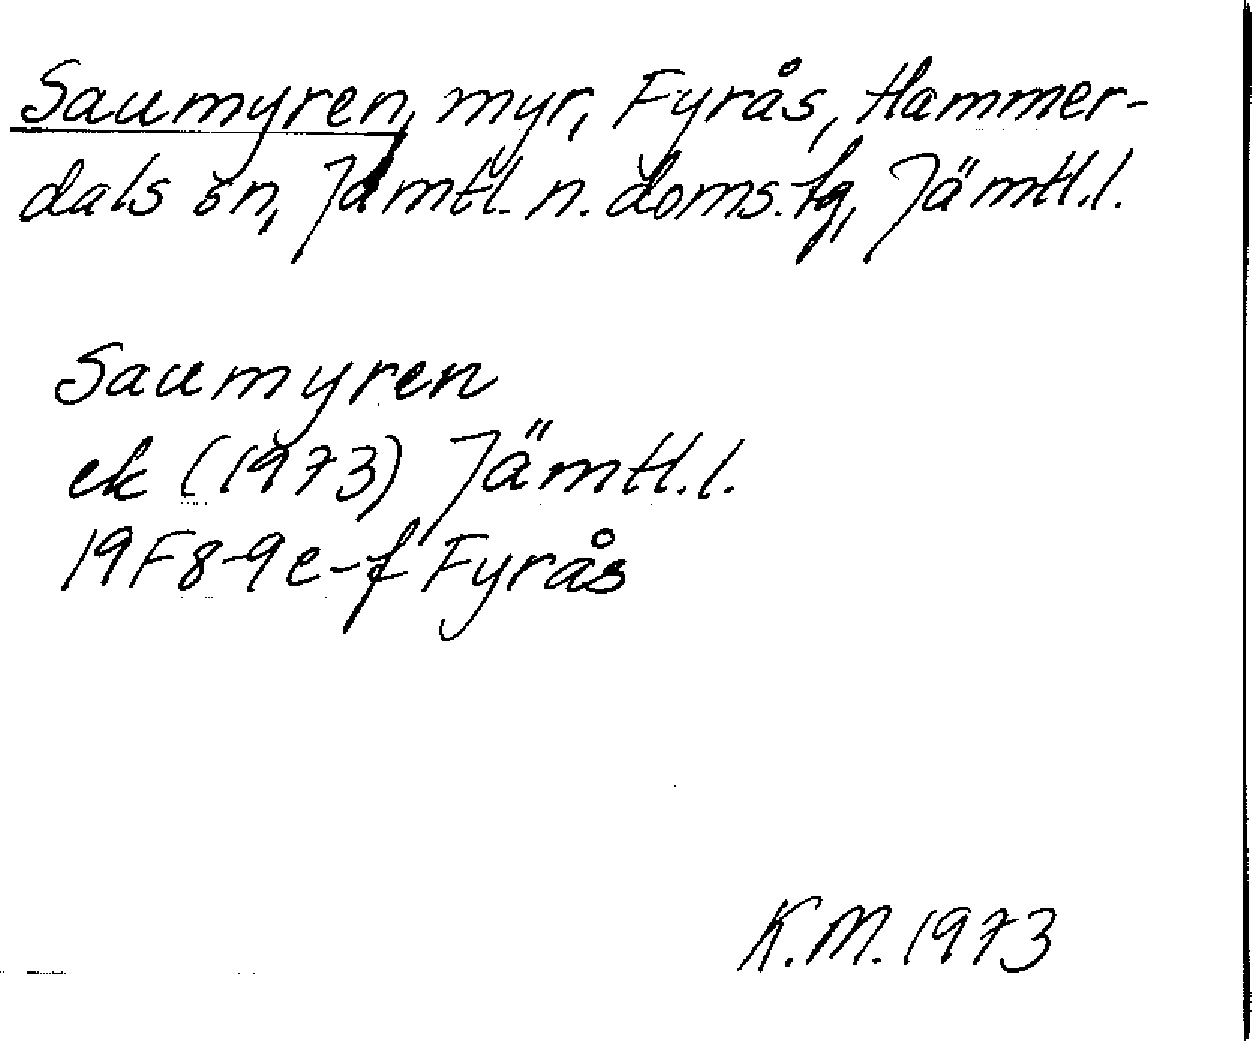 Saumyren, myr, Fyrås, Hammer-
dals sn, Jämtl. n. doms.fg, Jämtl.l.
Saumyren
ek (1973) Jämtl.l.
19F8-9e-f Fyrås
K.M. 1973